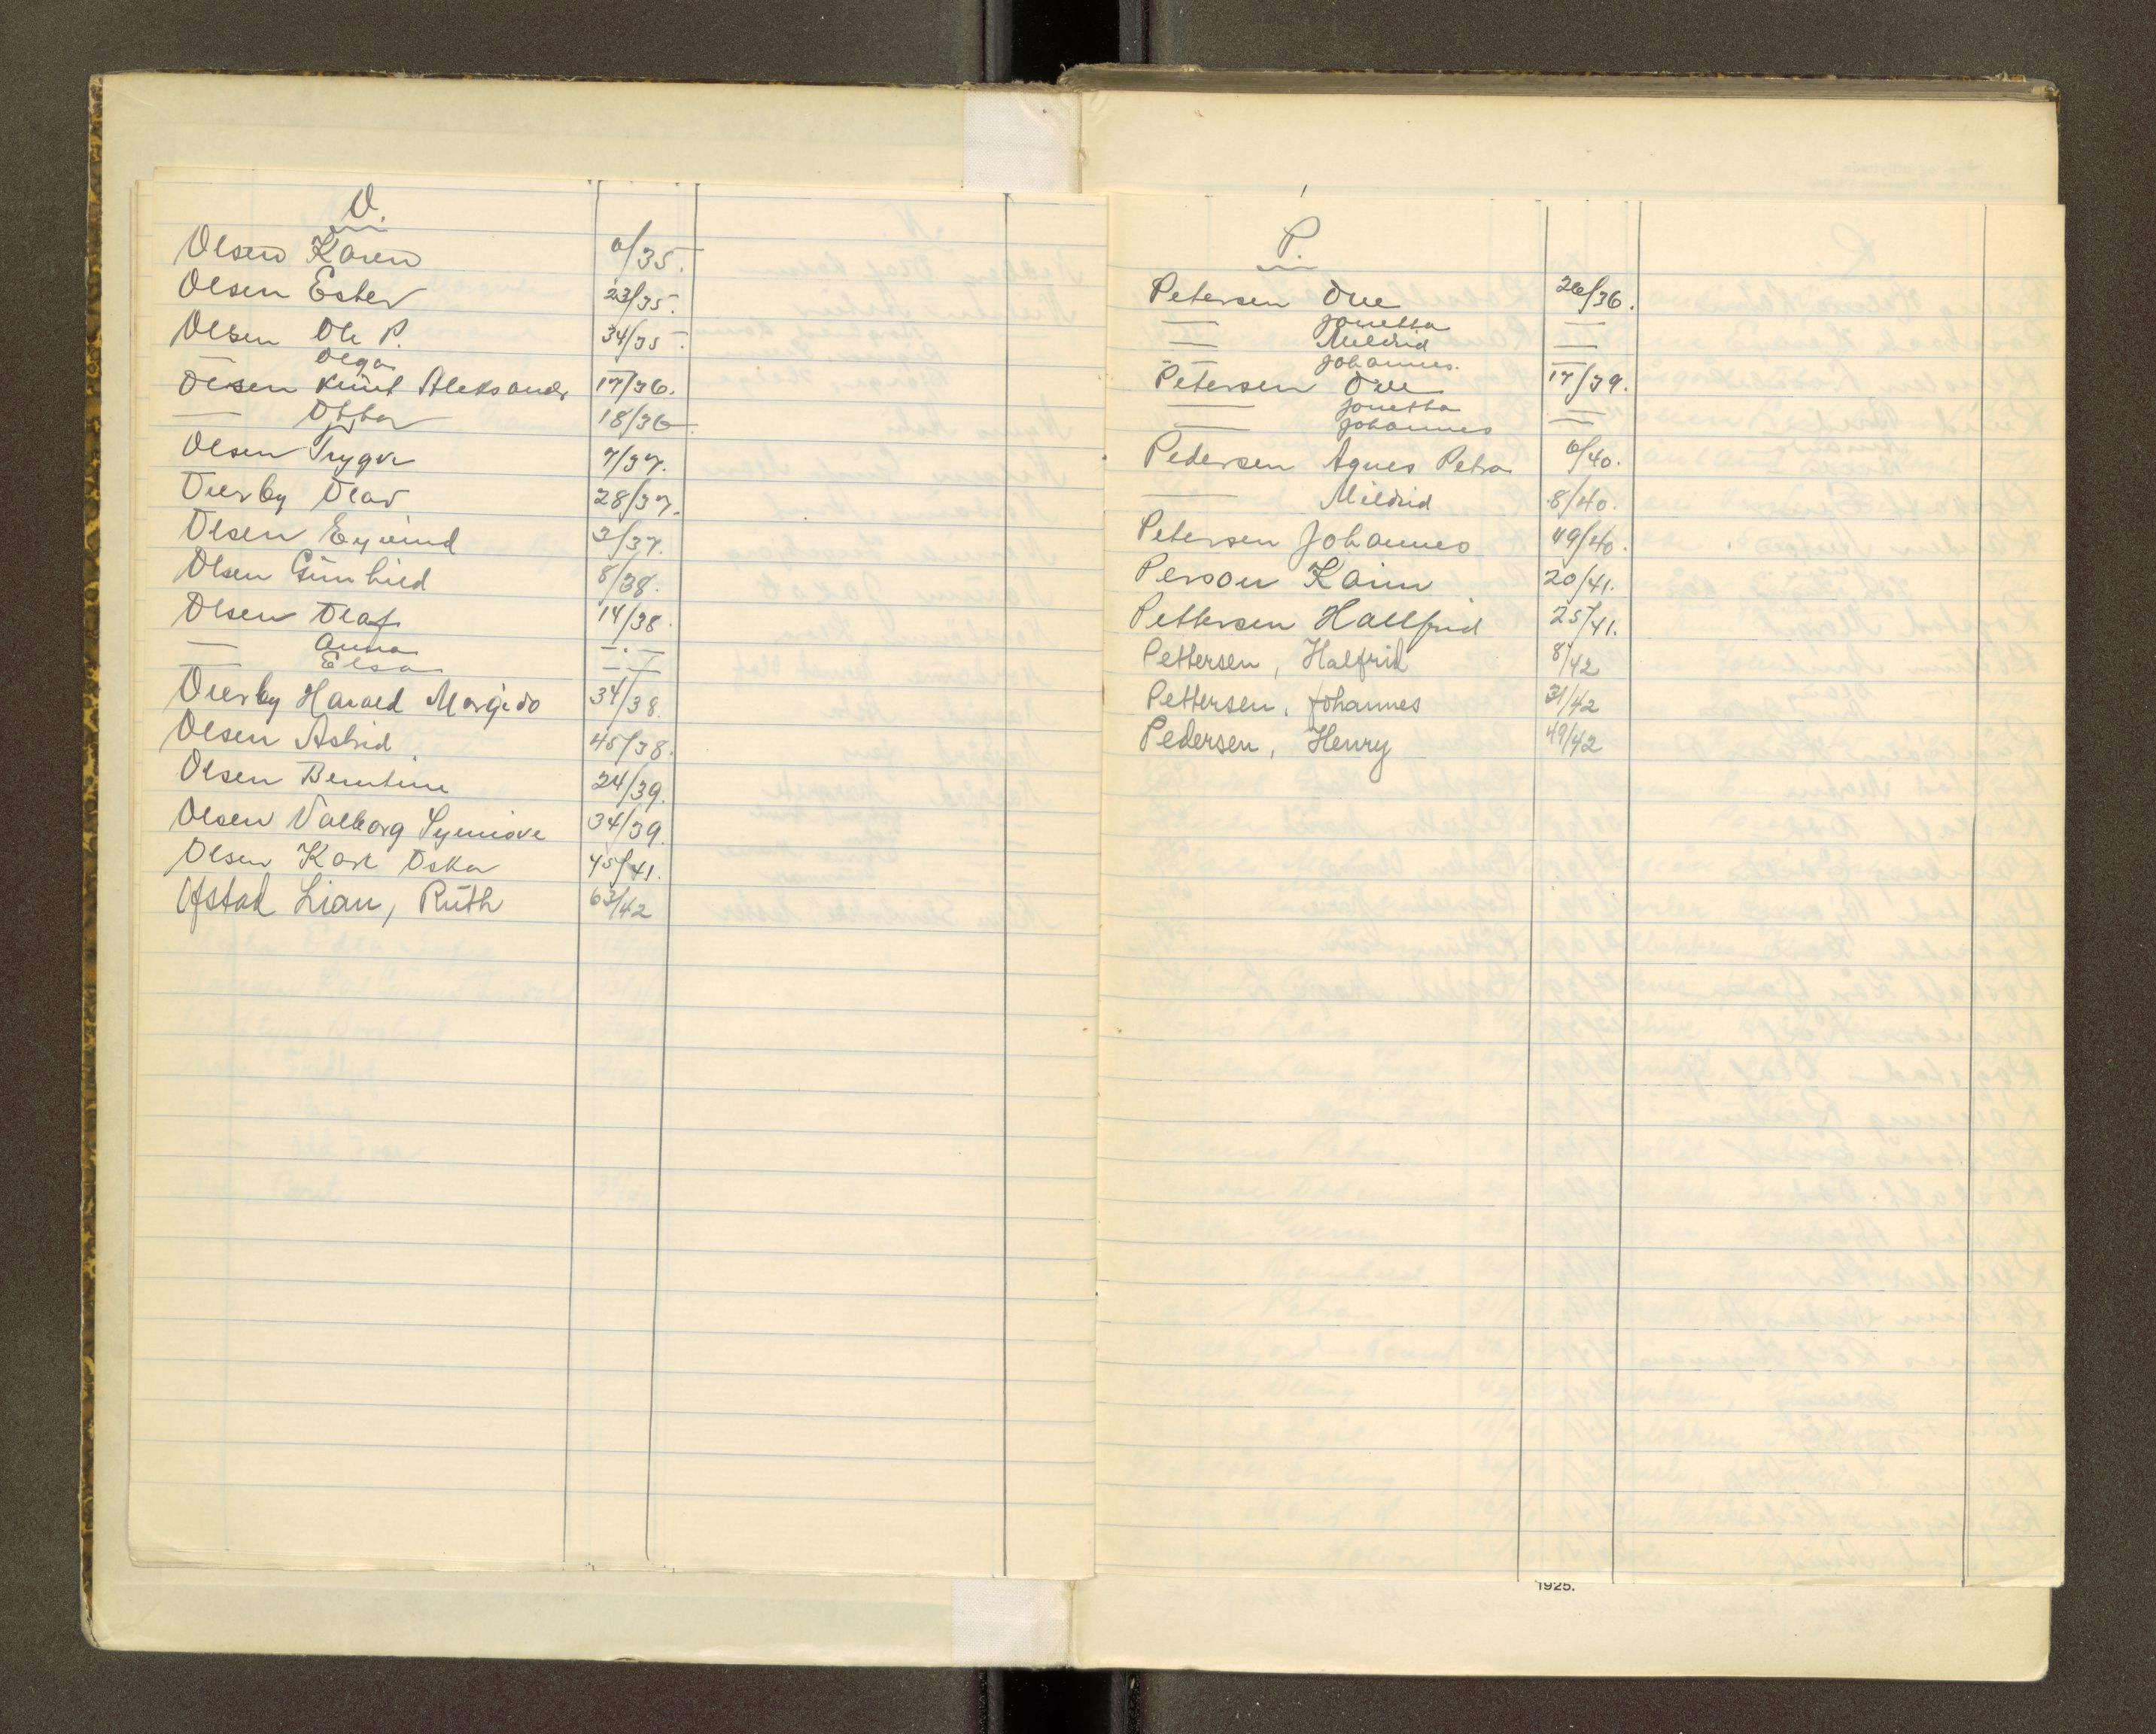 O.
Olsen Karen 6/35.
Olsen Ester 23/35.
Olsen Ole P. 34/35.
— Olga —
Olsen Knut Aleksander 17/36.
— Ottar 18/36.
Olsen Trygve 7/37.
Overby Olav 28/37.
Olsen Eyvind 3/37.
Olsen Gunhild 8/38.
Olsen Olaf 14/38.
— Anna —.—
— Elsa —.—
Overby Harald Margido 34/38.
Olsen Astrid 45/38.
Olsen Berntine 24/39.
Olsen Valborg Synnøve 34/39.
Olsen Karl Oskar 45/41.
Ofstad Lian, Ruth 63/42
P.
Petersen Ove 26/36.
— Jonetta —
— Mildrid —
— Johannes. —
Petersen Ove 17/39.
— Jonetta —
— Johannes —
Pedersen Agnes Petra 6/40.
— Mildrid 8/40.
Petersen Johannes 49/40.
Person Karin 20/41.
Pettersen Hallfrid 25/41.
Pettersen, Halfrid 8/42
Pettersen, Johannes 31/42
Pedersen, Henry 49/42
1925.